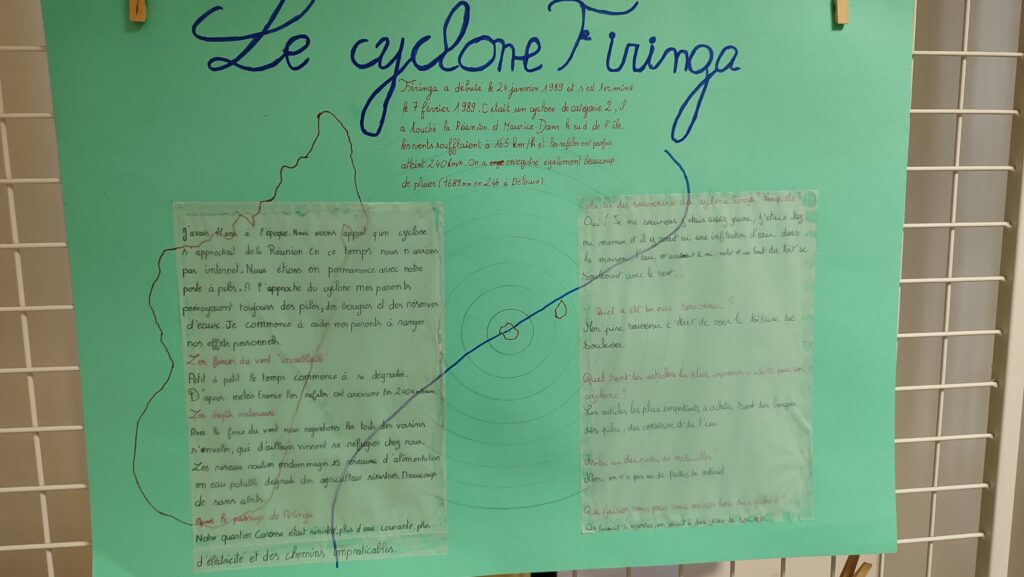 Le cyclone Firinga
Firinga a débuté le 24 janvier 1989 et s'est terminé
le 7 février 1989. C'était un cyclone de categorie 2, il
a touché la Réunion et Maurice. Dans le sud de l'île,
les vents soufflaient à 165 km/h et les rafales ont parfois
atteint 240 km/h. On a enregistré également beaucoup
de pluies (1689 mm en 24h à
J'avais ans à l'époque. Nous avons appris qu'un cyclone
s'approchait de la Réunion. En ce temps nous n'avions
pas internet. Nous étions en permanence avec notre
poste à piles. A l'approche du cyclone mes parents
prévoyaient toujours des piles, des bougies et des réserves
d'eaux. Je commence à aider mes parents à ranger
nos effets personnels.
Les forces du vent "inoubliable"
Petit à petit le temps commence à se dégrader.
D'après météo france les rafales ont avoisiné les 240 km/heure
Les dégâts matériaux.
Avec la force du vent nous regardions les toits des voisins
s'envolin, qui d'ailleurs vinrent se réfugier chez nous.
Les réseau routier endommagés réseaux d'alimentation
en eau potable dégradé des agriculteur sinistrés. Beaucoup
de sans abris.
Après le passage de Firinga
Notre quartier était sinistré, plus d'eau courante, plus
d'éléctricité et des chemins impraticables.
As-tu des souvenirs du cyclone Firinga? Lesquels?
Oui! Je me souviens j'étais assez jeune, j'étais chez
ma maman et il y avait eu une infiltration d'eau dans
la maison l'eau et un bout du toit se
soulevait avec le vent.
Quel a été ton pire souvenir?
Mon pire souvenir c'était de voir la toiture se
soulever.
Quel sont les articles les plus à avoir pour un
cyclone?
Les articles les plus importants à acheter sont des bougies,
des piles, des conserve et de l'eau
As-tu eu des pertes de matérielles?
Non, on n'a pas eu de pertes de matériel.
Que faisiez vous pour vous occuper lors du cyclone?
On jouait à on jouait à des jeux de société